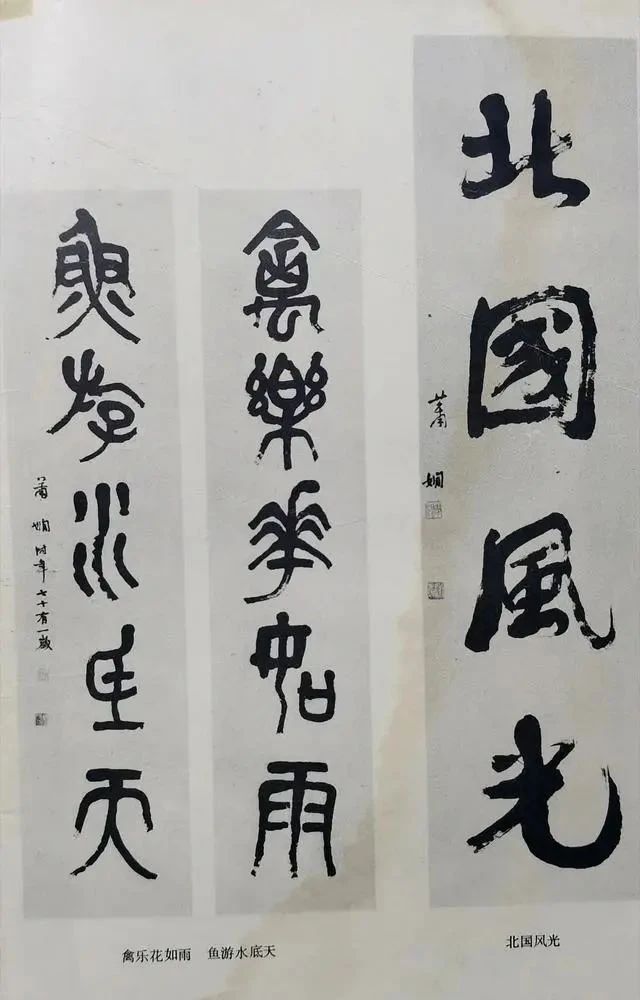 北國風光
蕭嫻
禽樂華如雨
魚游水底天
蕭嫻時年七十有一歲
禽乐花如雨 鱼游水底天
北国风光